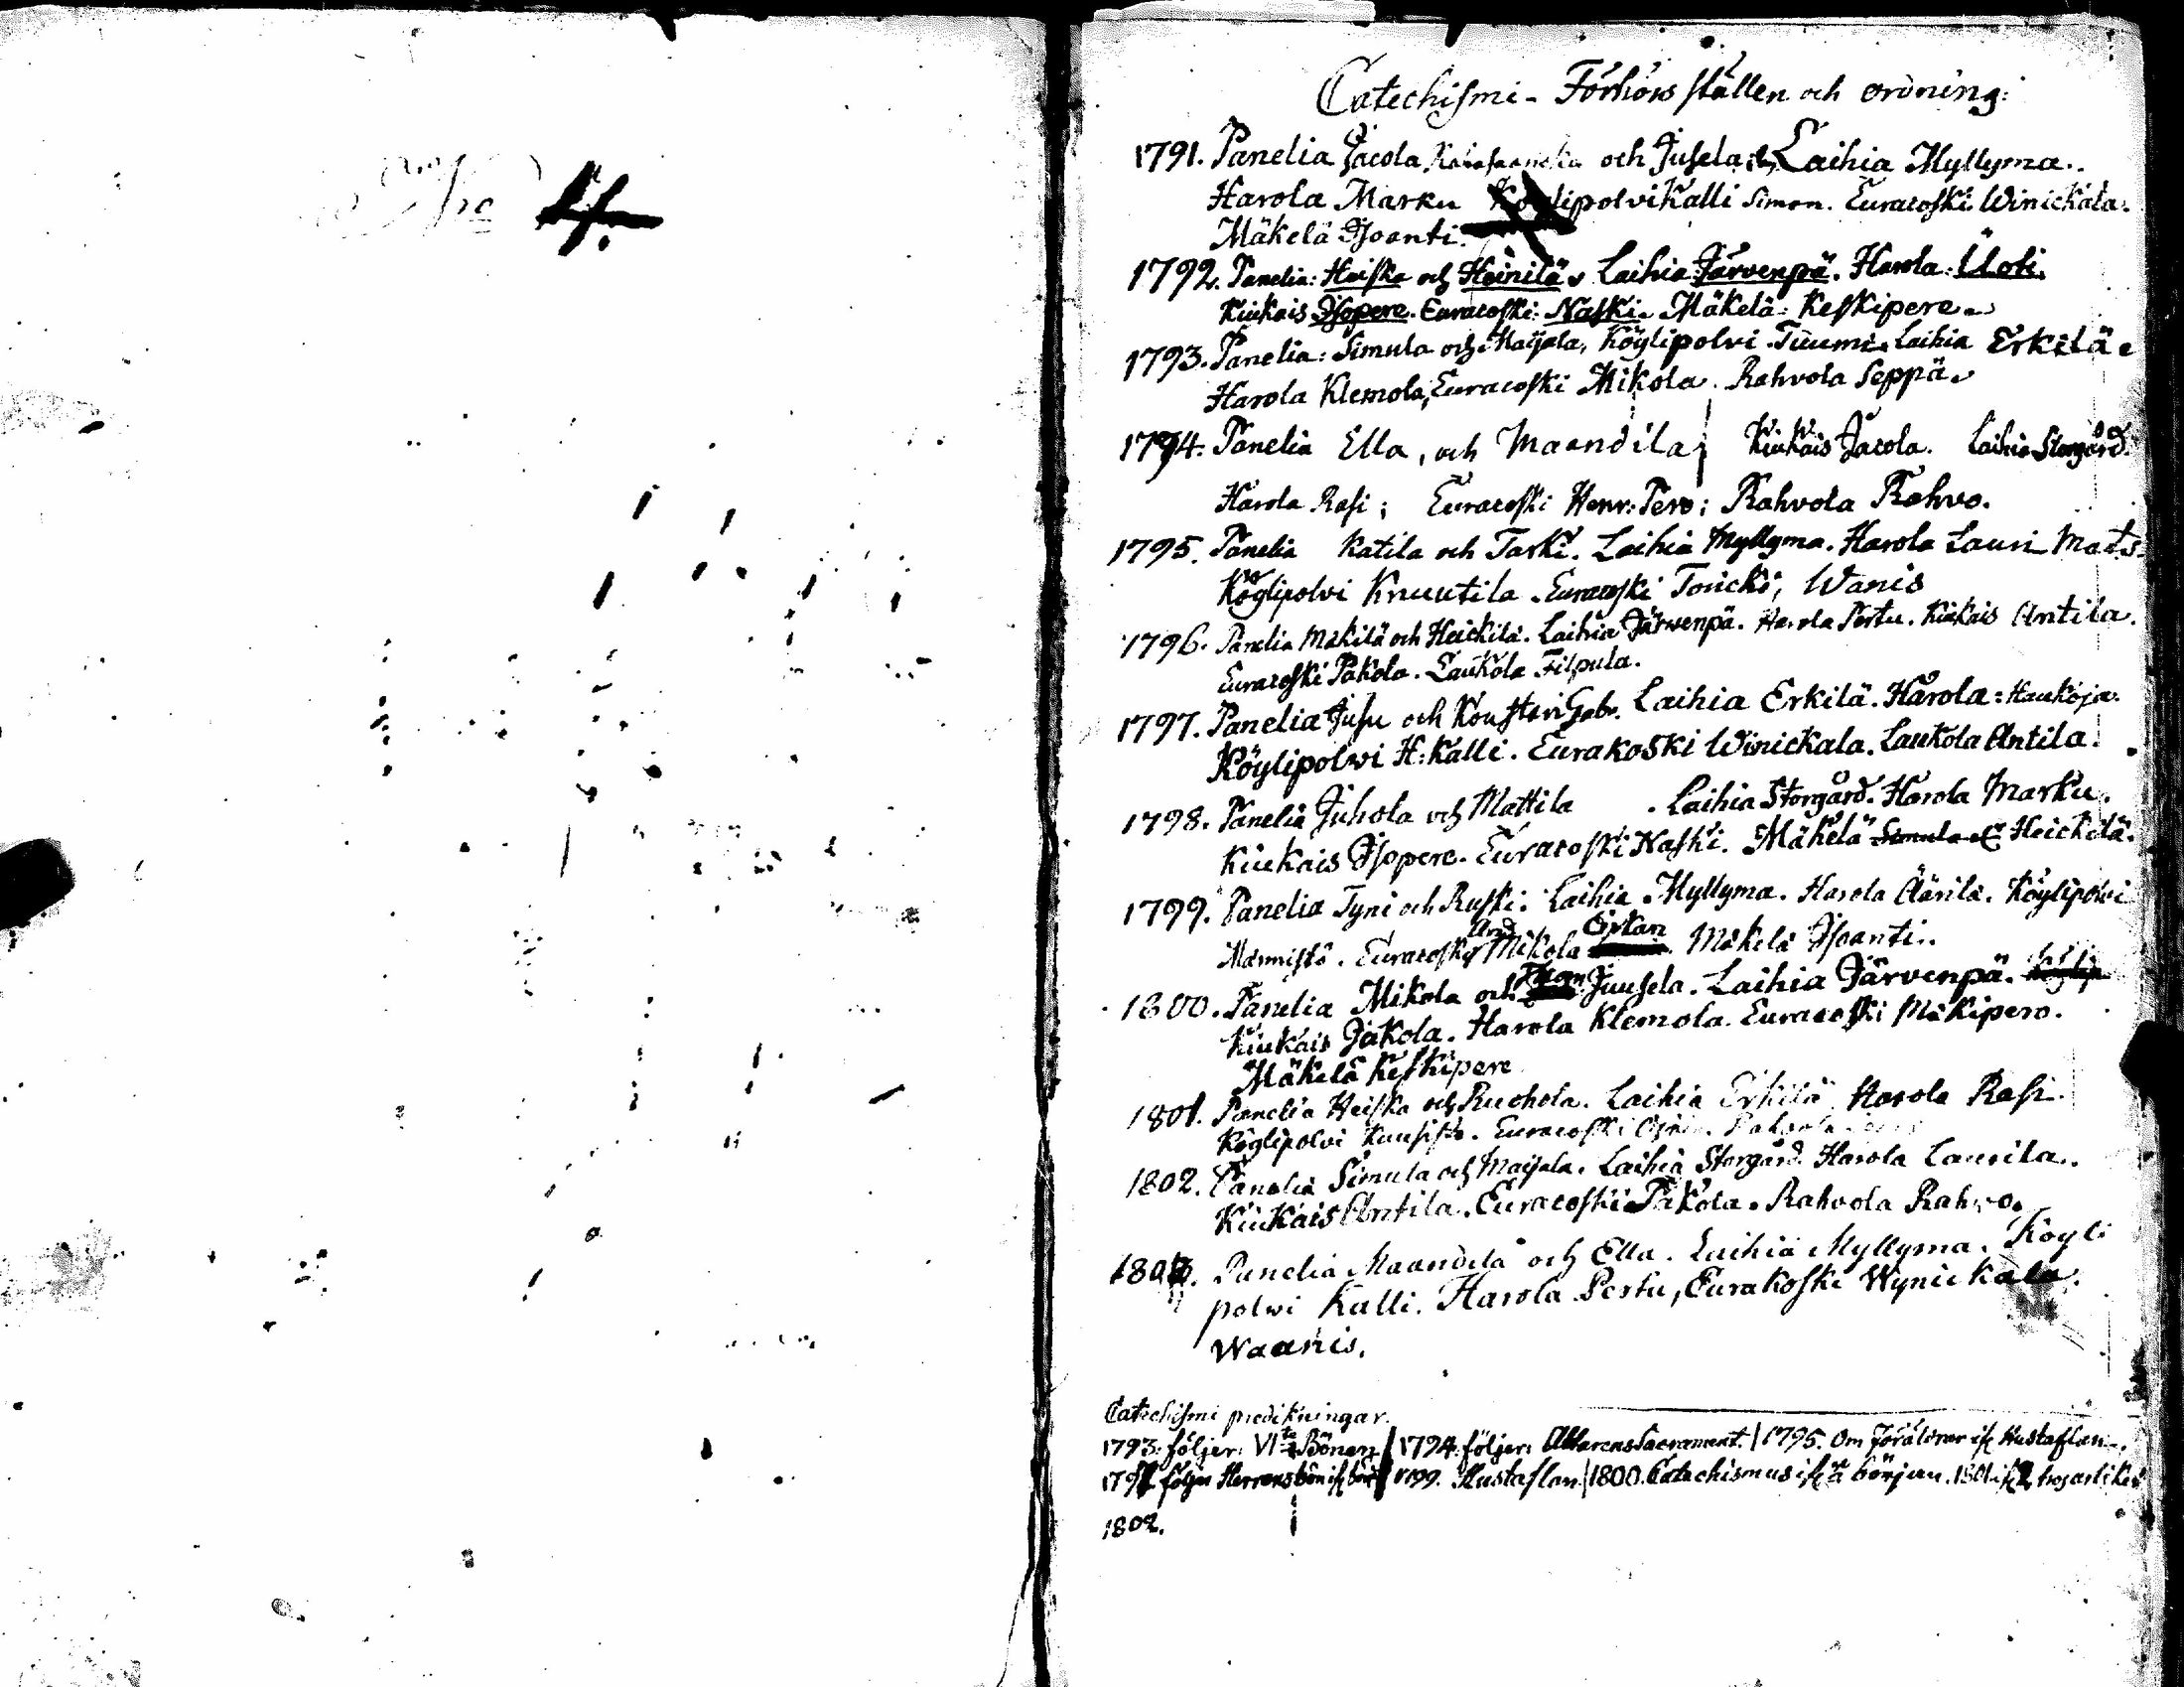 4.
Catechismi-Förhörs ställen och ordning:
1791. Panelia Jacola, och Jusela; Laihia Myllyma..
Harola Marku Köylipolvi Kalli Simon. Euracoski Winickala.
Mäkelä Isoanti.
1792. Panelia: Heiska och Heinilä, Laihia Järvenpä. Harola: Uoti.
Kiukais Isopere. Euracoski: Naski. Mäkelä: Keskipere.
1793. Panelia: Simula och Maijala, Köylipolvi Tuumi. Laihia Erkilä.
Harola Klemola, Euracoski Mikola. Rahvola Seppä.
1794. Panelia Ella, och Maandila; Kiukais Jacola. Laihia Storgård.
Harola Rasi; Euracoski Henr: Pero; Rahvola Rahvo.
1795. Panelia Katila och Taski. Laihia Myllyma. Harola Lauri Mats.
Köylipolvi Knuutila. Euracoski Tonicki; Wanis
1796. Panelia Mäkilä och Heickilä. Laihia Järwenpä. Harola Pertu. Kiukais Antila.
Euracoski Pakola. Laukola Filpula.
1797. Panelia Jusu och Kousteri Gabr. Laihia Erkilä. Harola: Haukoja.
Köylipolwi H: Kalli. Eurakoski Winickala. Laukola Antila.
1798. Panelia Juhola och Mattila. Laihia Storgård. Harola Marku.
Kiukais Isopere. Euracoski Naski. Mäkelä Simula Heickilä.
1799. Panelia Tyni och Ruski. Laihia Myllyma. Harola Äärilä. Köylipolvi
Männistö. Euracoski And Mikola Ojstan Mäkelä Isoanti..
1800. Panelia Mikola och Juusela. Laihia Järvenpä.
Kiukais Jakola. Harola Klemola. Euracoski Mäkipero.
Mäkelä Keskipere
1801. Panelia Heiska och Ruohola. Laihia Erkilä Harola Rasi.
Köylipolvi Kuusisto. Euracoski
1802. Panelia Simula och Maijala. Laihia Storgård. Harola Laurila.
Kiukais Antila. Euracoski Pakola. Rahvola Rahvo.
1803. Panelia Maandila och Ella. Laihia Myllyma. Köyli
polwi Kalli. Harola Pertu, Eurakoski Wynickala.
Waanis.
Catechismi predikningar.
1793: följer: VIte Bönen 1794: följer: Altarens Sacrament. 1795. Om Föräldrar Hustaflan.
följer Herrens bön 1799. Hustaflan. 1800. Catechismus början. 1801
1802.